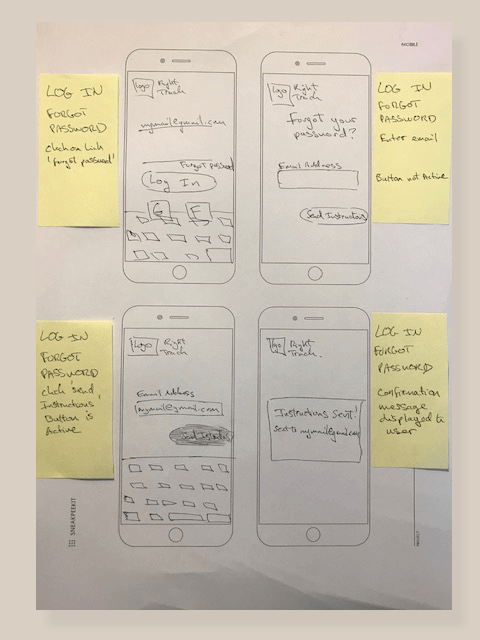 MOBILE
LOG IN
FORGOT
PASSWORD
click on link
'forgot password'
logo
Right
Track
mymail@gmail.com
Forgot password
Log In
G F
logo
Right
Track
Forgot your
password?
Email Address
Send Instructions
LOG IN
FORGOT
PASSWORD
Enter email
Button not Active
LOG IN
FORGOT
PASSWORD
click 'send
Instructions'
Button is
Active
logo
Right
Track
Email Address
mymail@gmail.com
Send Instructions
logo
Right
Track.
Instructions Sent!
sent to mymail@gmail.com
LOG IN
FORGOT
PASSWORD
Confirmation
message
displayed to
user
SNEAKPEEKIT
PROJECT